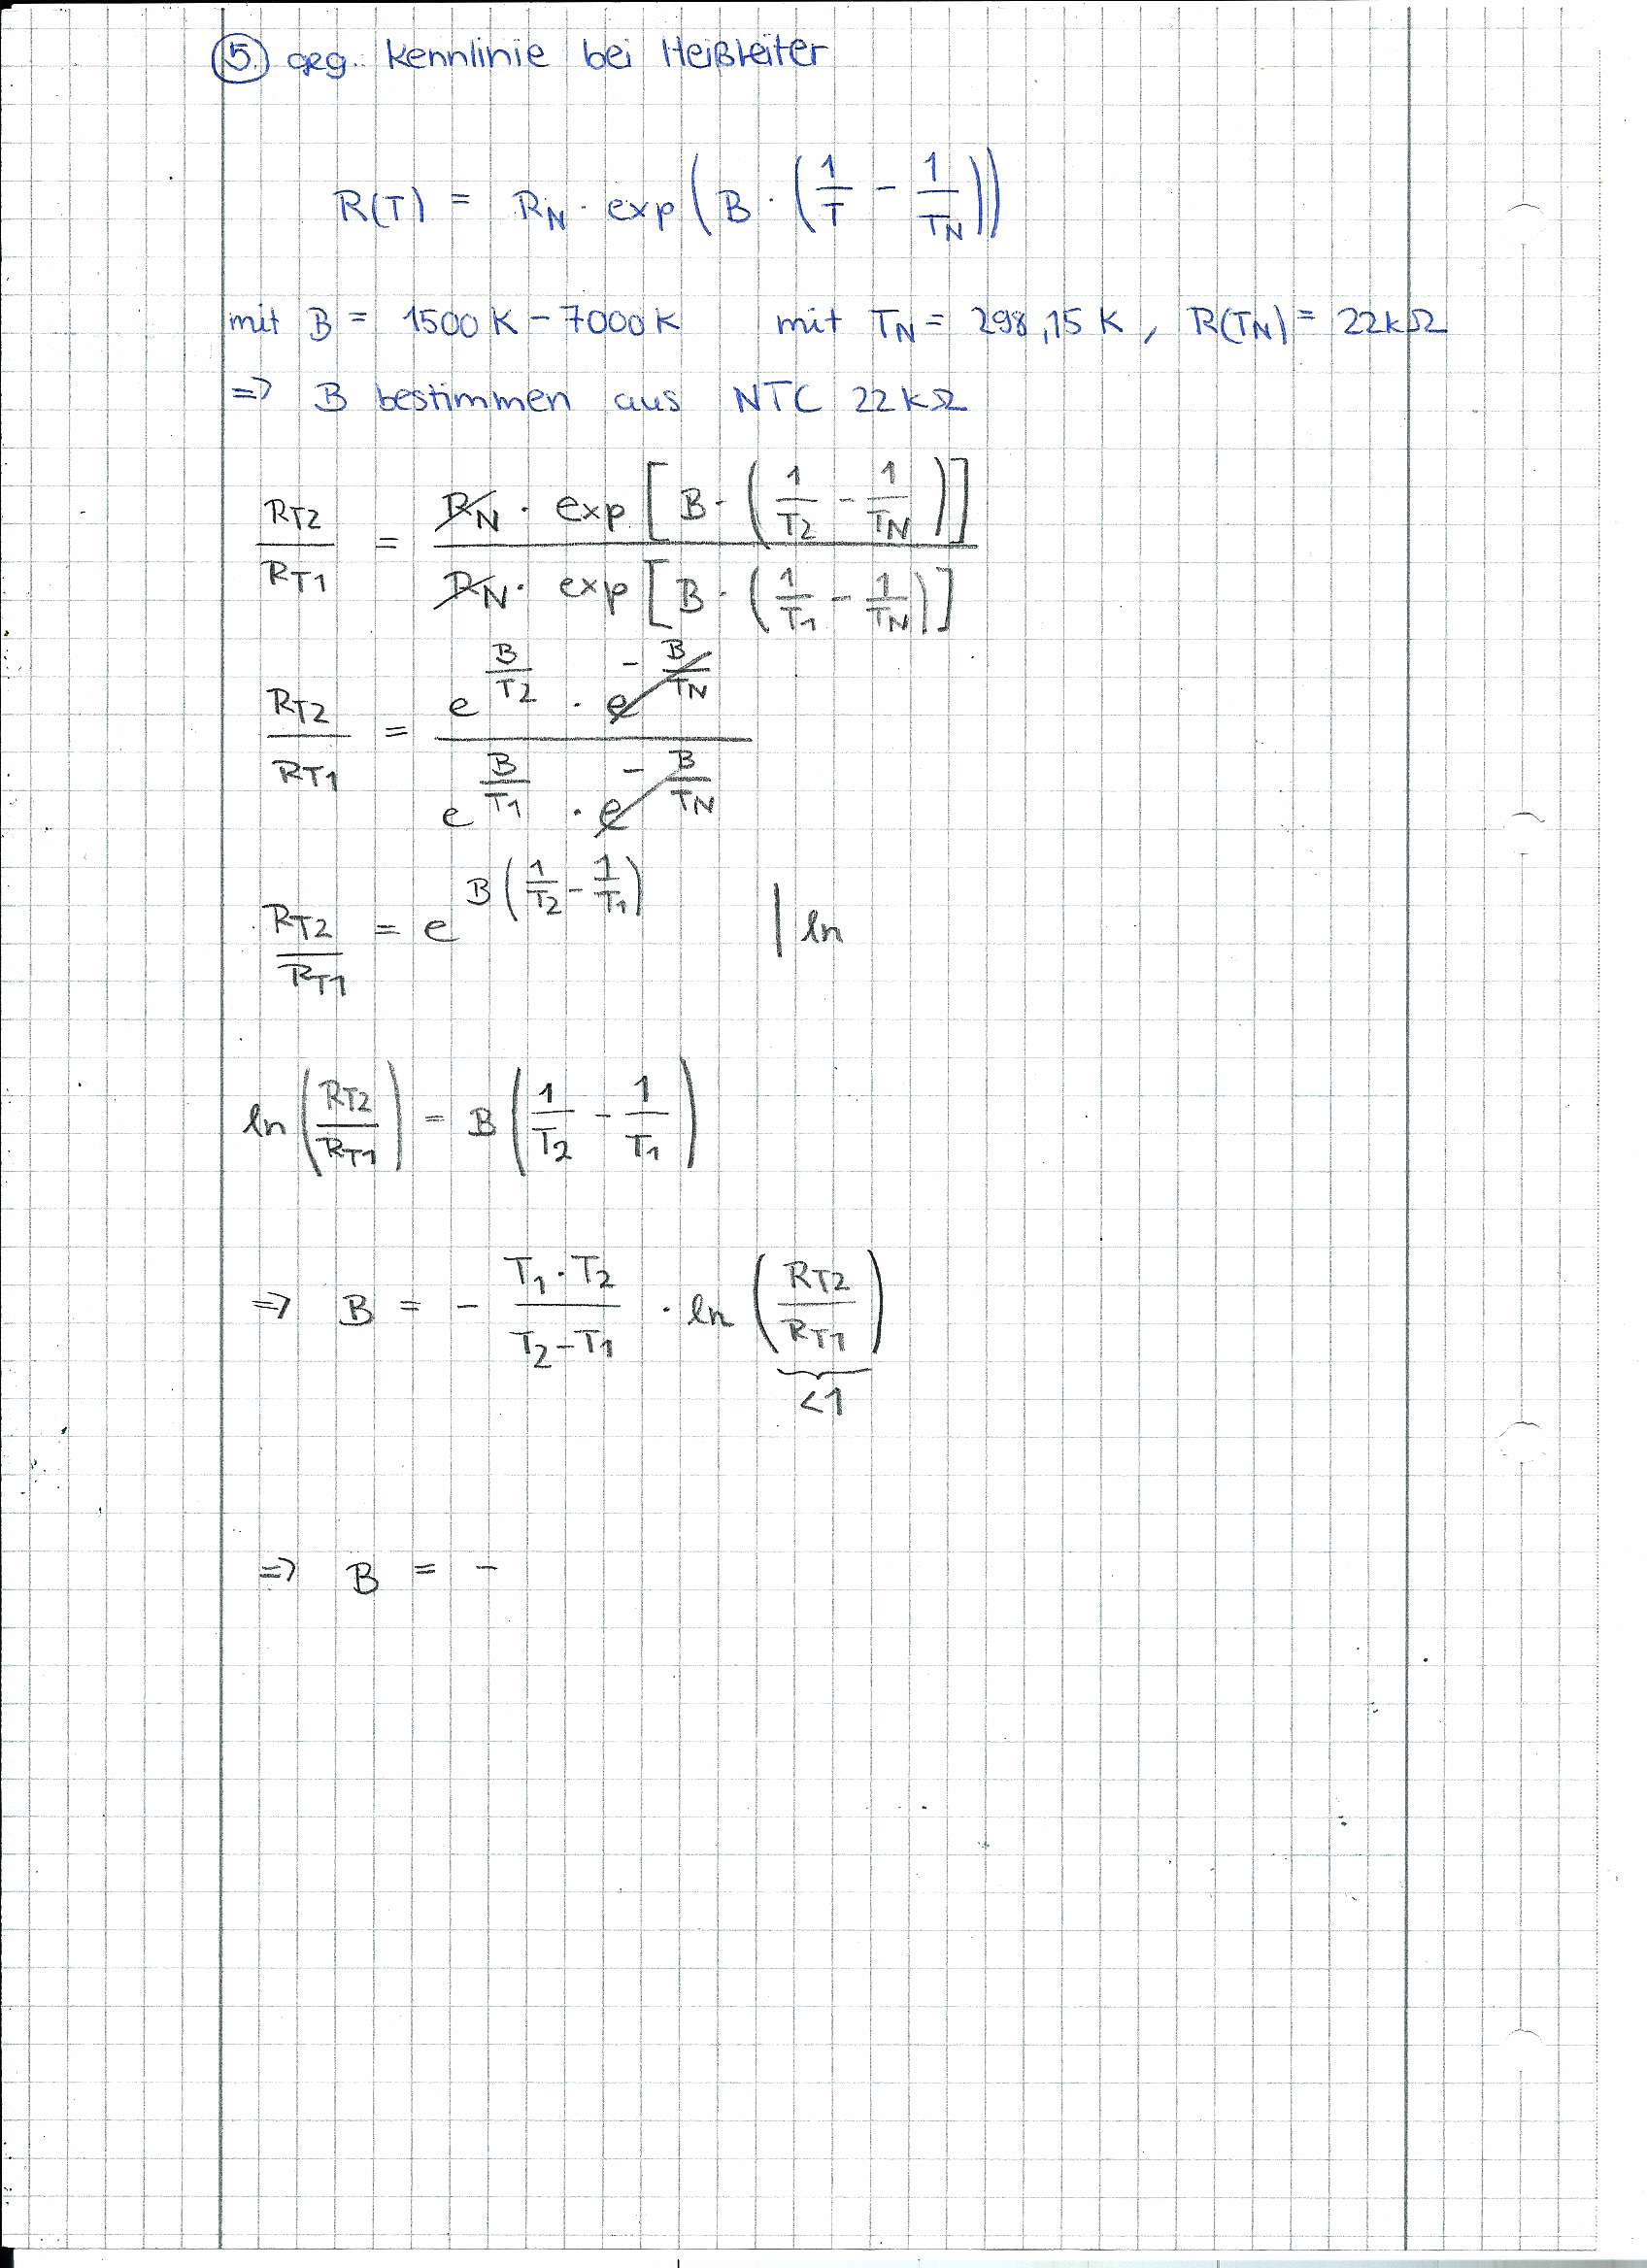 5. geg.: Kennlinie bei Heißleiter
R(T) = R_N · exp(B · (1/T - 1/T_N))
mit B = 1500 K - 7000 K mit T_N = 298,15 K, R(T_N) = 22kΩ
=> B bestimmen aus NTC 22kΩ
R_T2/R_T1 = R_N · exp[B · (1/T_2 - 1/T_N)] / R_N · exp[B · (1/T_1 - 1/T_N)]
R_T2/R_T1 = e^(B/T_2) · e^(-B/T_N) / e^(B/T_1) · e^(-B/T_N)
R_T2/R_T1 = e^(B(1/T_2 - 1/T_1)) | ln
ln(R_T2/R_T1) = B(1/T_2 - 1/T_1)
=> B = - T_1 · T_2 / T_2 - T_1 · ln(R_T2/R_T1)
<1
=> B = -